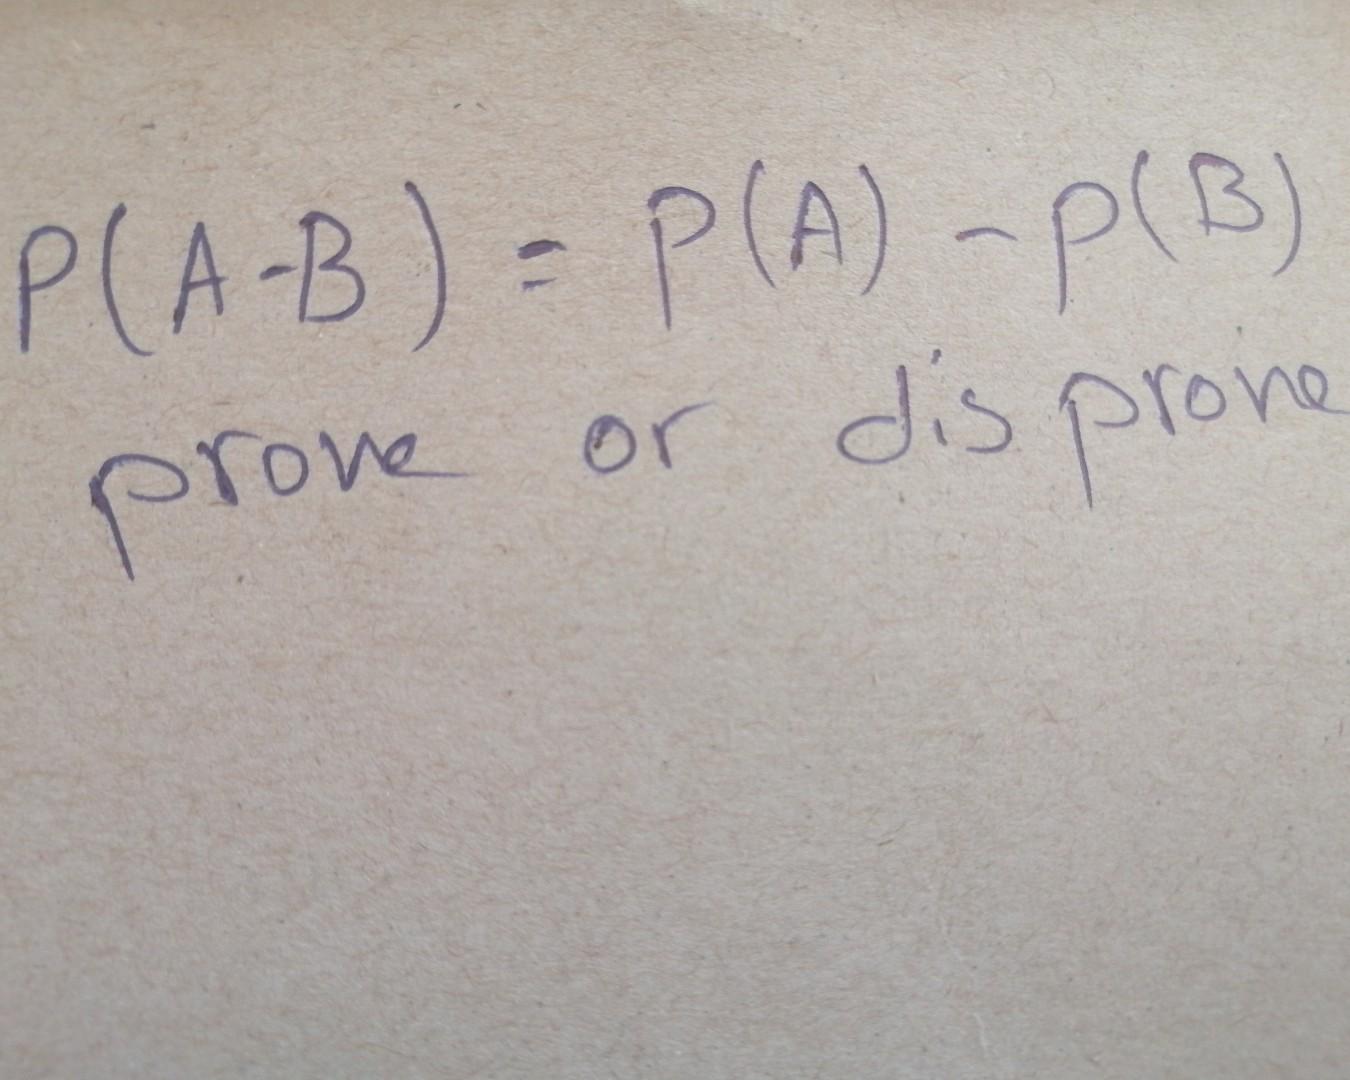 P(A-B) = P(A) - P(B)
prove or dis prove